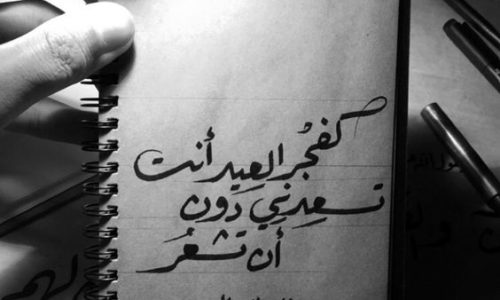 كفجْر العِيد أنت
تسعِدني دَون
أن تشعُر